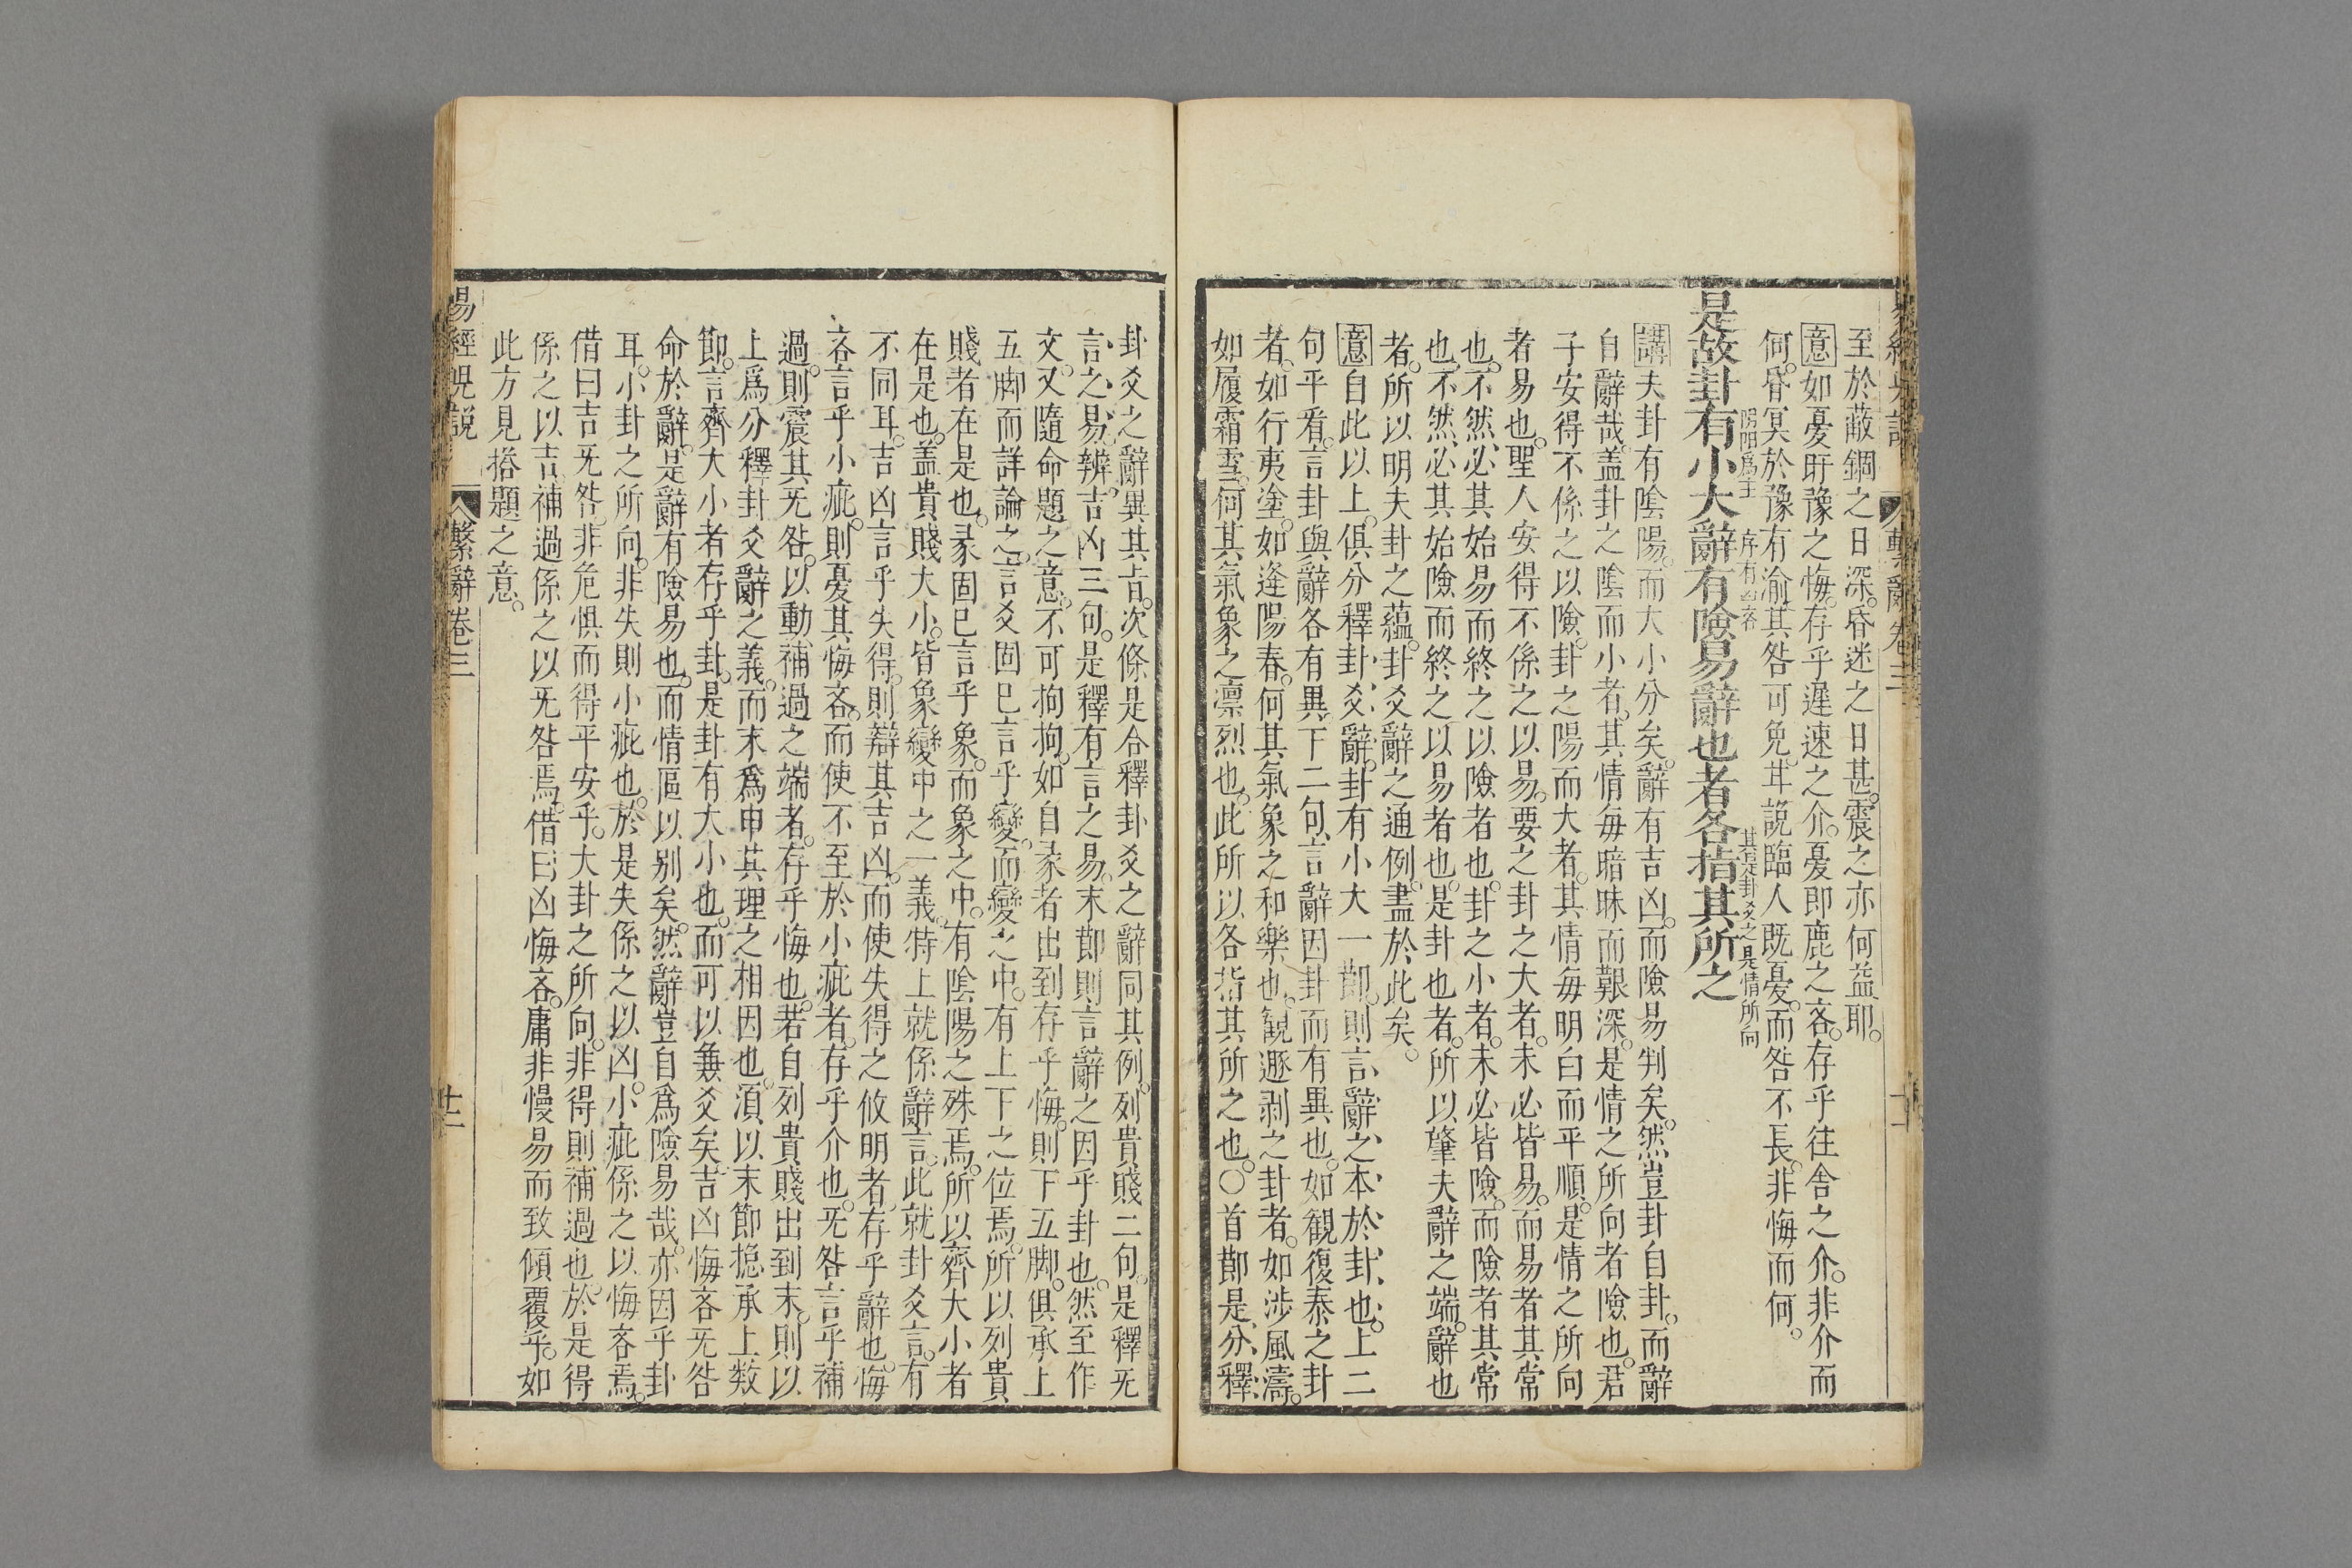 至於蔽錮之日深。昏迷之日甚。震之亦何益耶。
意如憂盱豫之悔。存乎遲速之介。憂即鹿之吝。存乎往舍之介。非介而
何。昏冥於豫。有渝其咎可免。耳説臨人既憂。而咎不長。非悔而何。
陰陽爲主 序有凶吝 其指卦爻之是情所向
是故卦有小大辭有險易辭也者各指其所之
講夫卦有陰陽。而大小分矣。辭有吉凶。而險易判矣。然豈卦自卦。而辭
自辭哉。蓋卦之陰而小者。其情每暗昧而艱深。是情之所向者險也。君
子安得不係之以險。卦之陽而大者。其情每明白而平順。是情之所向
者易也。聖人安得不係之以易。要之卦之大者。未必皆易。而易者其常
也。不然必其始易而終之以險者也。卦之小者。未必皆險。而險者其常
也。不然必其始險而終之以易者也。是卦也者。所以肇夫辭之端。辭也
者。所以明夫卦之蘊。卦爻辭之通例。盡於此矣。
意自此以上。俱分釋卦爻辭。卦有小大一節。則言辭之本於卦也。上二
句平看。言卦與辭各有異。下二句。言辭因卦而有異也。如觀復泰之卦
者。如行夷塗。如逢陽春。何其氣象之和樂也。觀遯剥之卦者。如涉風濤。
如履霜雪。何其氣象之凛烈也。此所以各指其所之也。○首節是分釋
卦爻之辭異其旨。次條是合釋卦爻之辭同其例。列貴賤二句。是釋无
言之易。辨吉凶三句。是釋有言之易。末節則言辭之因乎卦也。然至作
文。又隨命題之意。不可拘拘。如自彖者出到存乎悔。則下五脚。俱承上
五脚而詳論之。言爻固已言乎變。而變之中。有上下之位焉。所以列貴
賤者在是也。彖固已言乎象。而象之中。有陰陽之殊焉。所以齊大小者
在是也。蓋貴賤大小。皆象變中之一義。特上就係辭言。此就卦爻言。有
不同耳。吉凶言乎失得。則辯其吉凶。而使失得之攸明者。存乎辭也。悔
吝言乎小疵。則憂其悔吝。而使不至於小疵者。存乎介也。无咎言乎補
過。則震其无咎。以動補過之端者。存乎悔也。若自列貴賤出到末。則以
上爲分釋卦爻辭之義。而末爲申其理之相因也。須以末節捴承上数
節。言齊大小者存乎卦。是卦有大小也。而可以兼爻矣。吉凶悔吝无咎
命於辭。是辭有險易也。而情區以別矣。然辭豈自爲險易哉。亦因乎卦
耳。小卦之所向。非失則小疵也。於是失係之以凶。小疵係之以悔吝焉。
借曰吉无咎。非危惧而得平安乎。大卦之所向。非得則補過也。於是得
係之以吉。補過係之以无咎焉。借曰凶悔吝。庸非慢易而致傾覆乎。如
此方見搭題之意。
易經兒説 繫辭卷三 十二